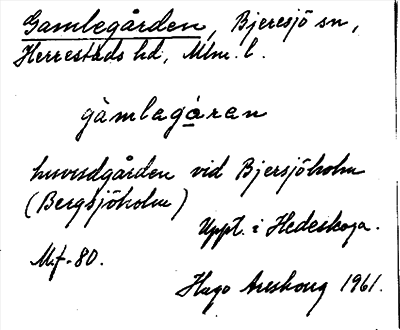 Gamlegården, Bjeresjö sn,
Herrestads hd, Mlm. l.
gàmlagáran
huvudgården vid Bjersjöholm
(Bergsjöholm)
Uppt. i Hedeskoga.
M.f. 80.
Hugo Areskoug 1961.